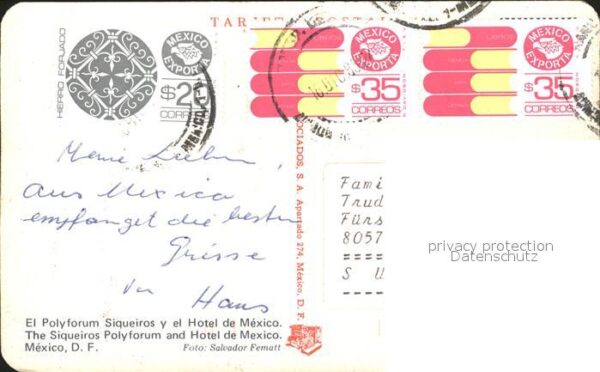 TARJETA POSTAL
HIERRO FORJADO
MEXICO
EXPORTA
CORREOS
MEXICO
EXPORTA
$35
CORREOS
MEXICO
EXPORTA
$35
CORREOS
Meine Lieben,
aus Mexico
empfanget die besten
Grüsse
von
Hans
OCIADOS, S. A. Apartado 274, México, D. F.
Fami
Trud
Fürs
8057
S U
privacy protection
Datenschutz
El Polyforum Siqueiros y el Hotel de México.
The Siqueiros Polyforum and Hotel de Mexico.
México, D. F.
Foto: Salvador Fematt